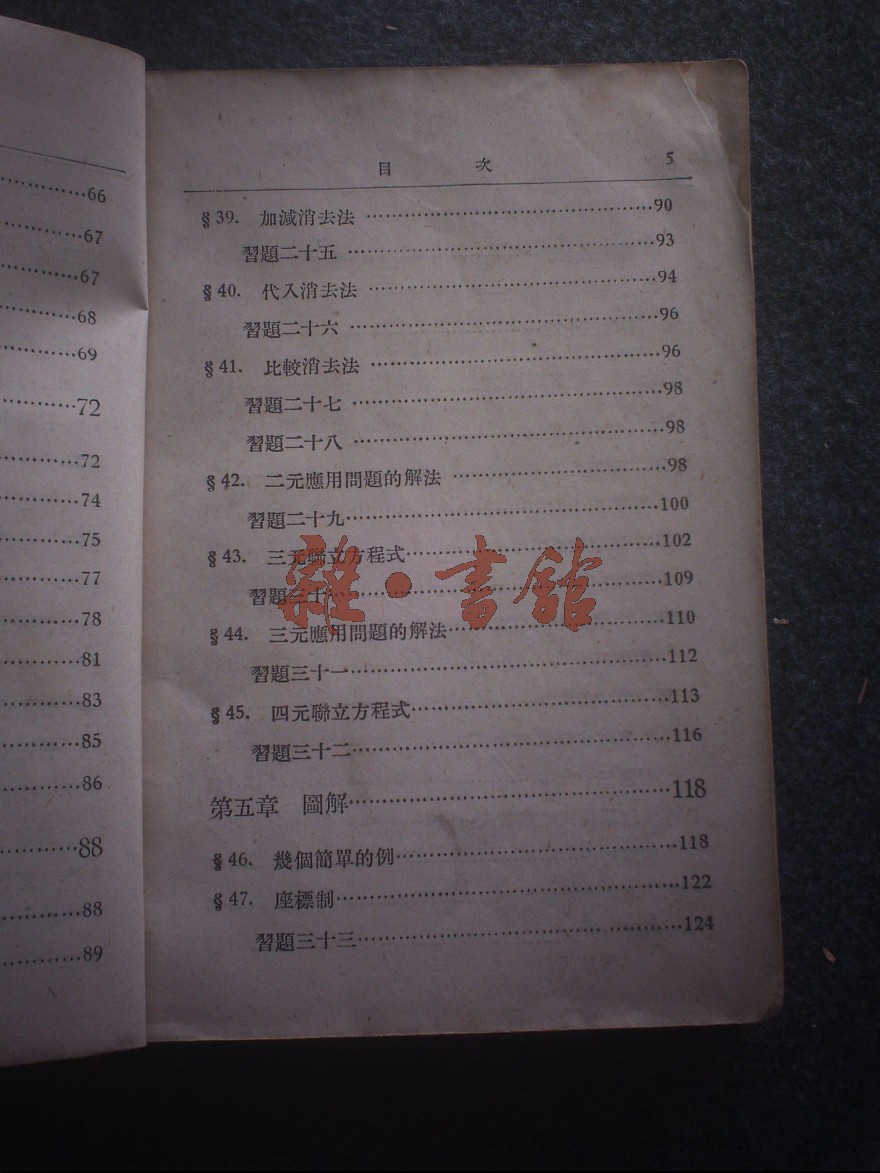 66
67
67
68
69
72
72
74
75
77
78
81
83
85
86
88
88
89
目 次 5
§39. 加減消去法 90
習題二十五 93
§40. 代入消去法 94
習題二十六 96
§41. 比較消去法 96
習題二十七 98
習題二十八 98
§42. 二元應用問題的解法 98
習題二十九 100
§43. 三元聯立方程式 102
習題三十 109
§44. 三元應用問題的解法 110
習題三十一 112
§45. 四元聯立方程式 113
習題三十二 116
第五章 圖解 118
§46. 幾個簡單的例 118
§47. 座標制 122
習題三十三 124
雜·書館